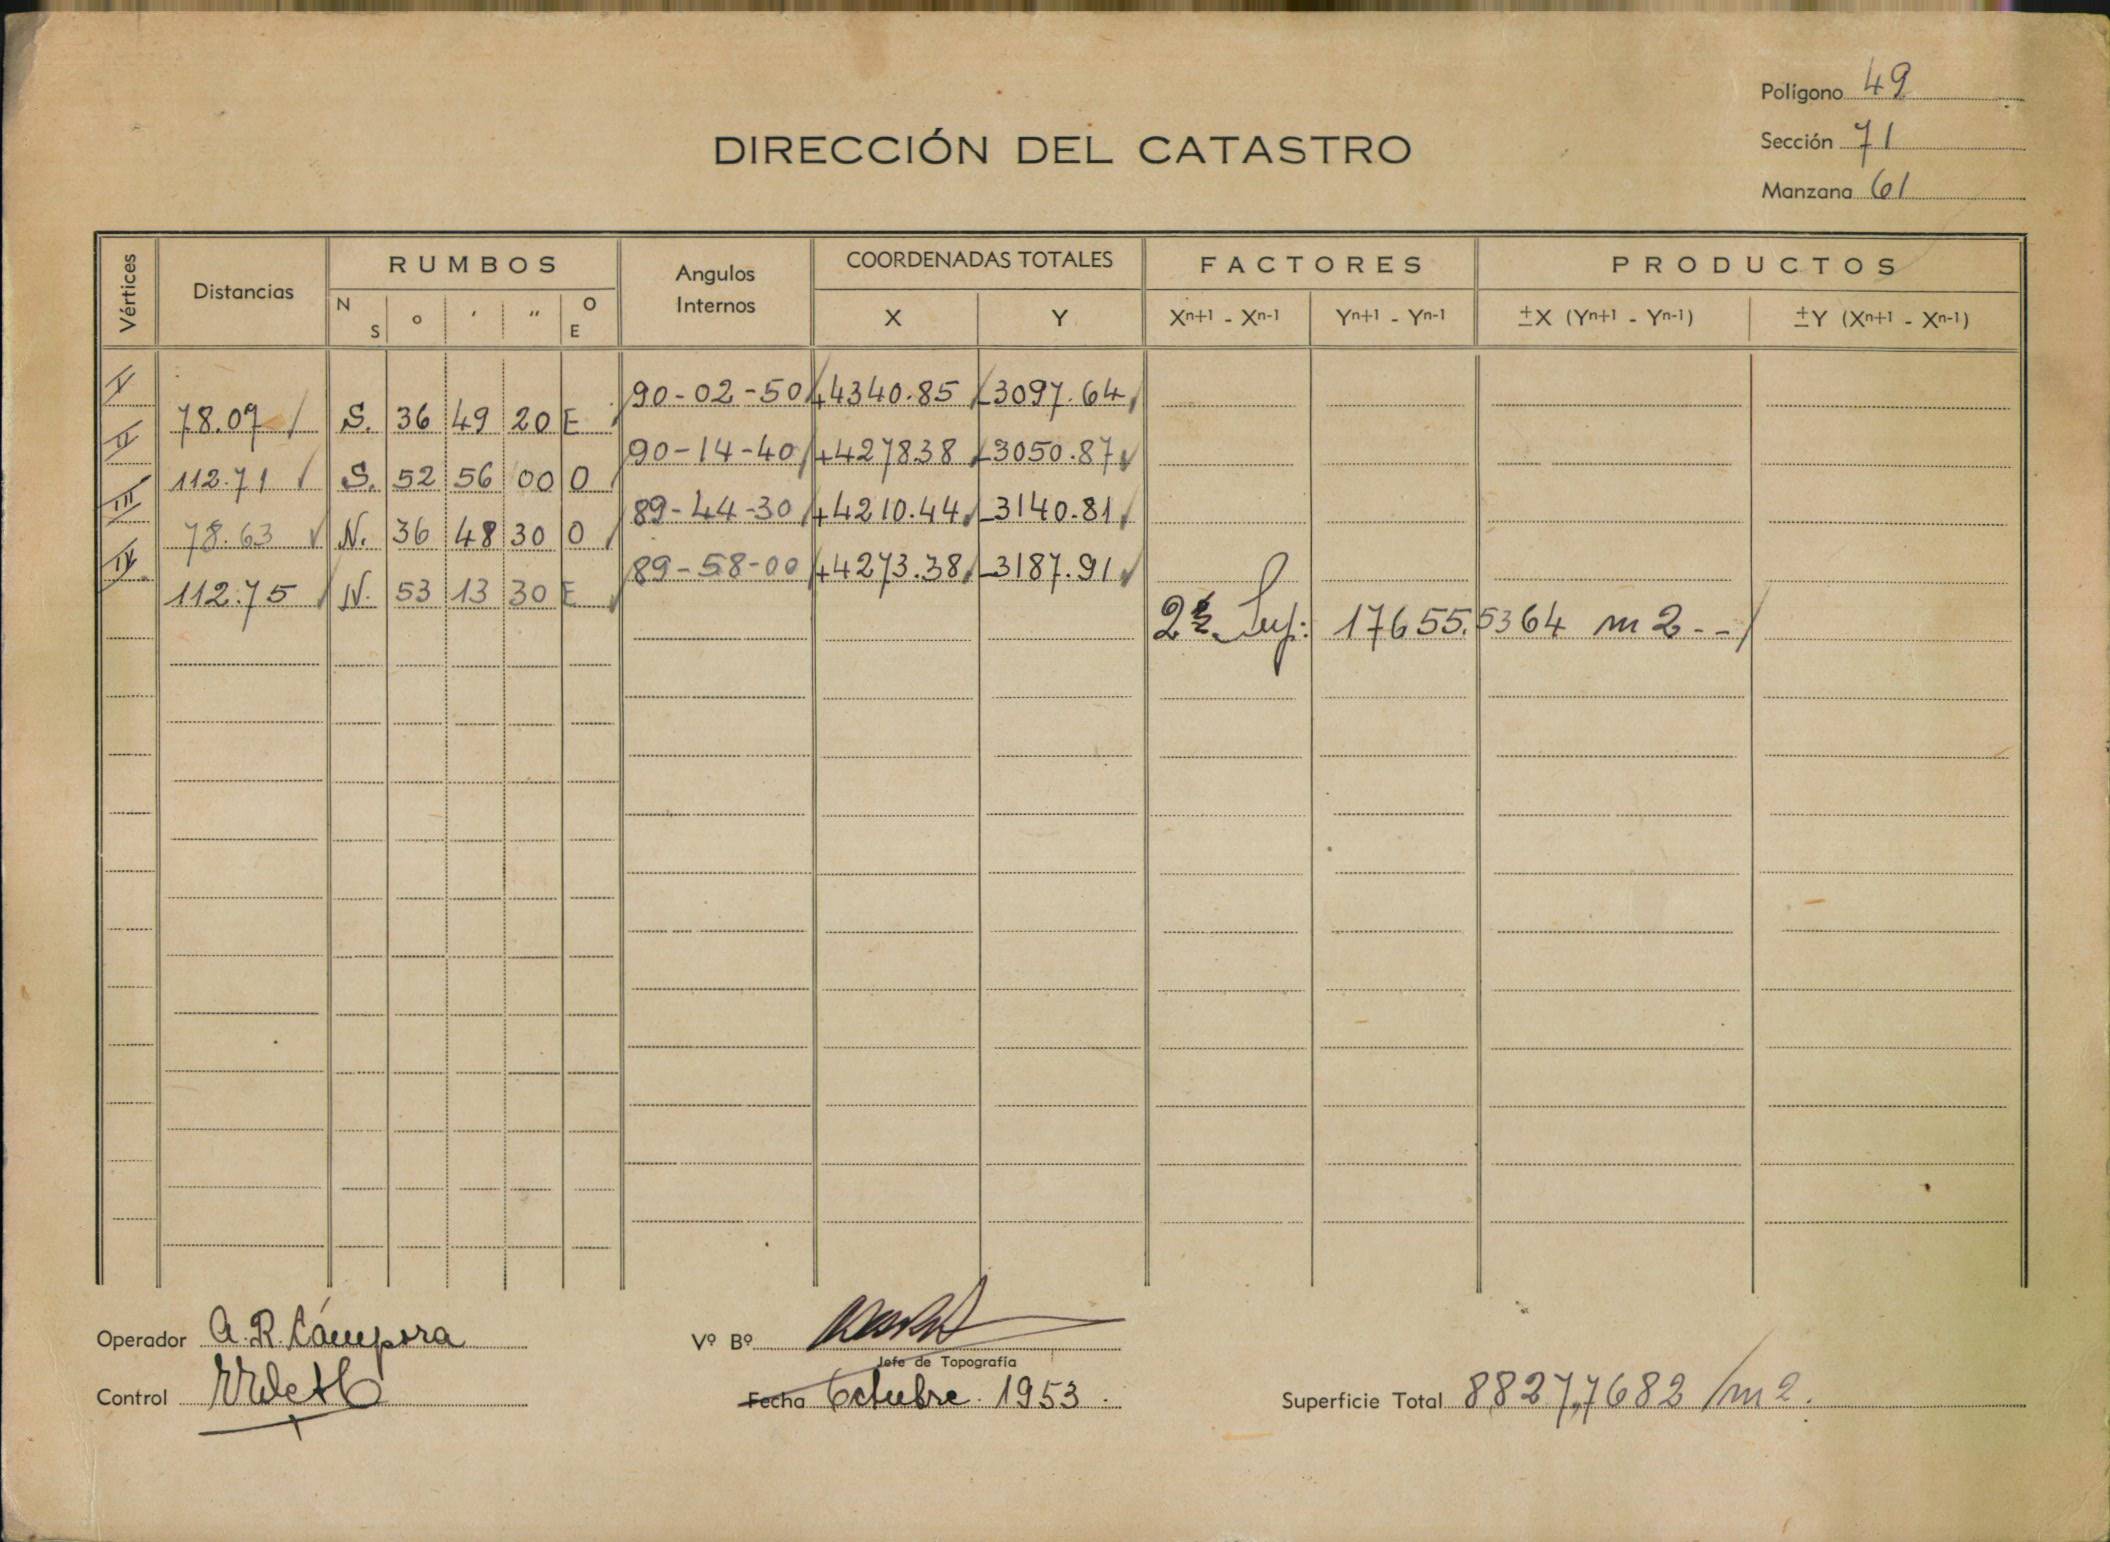 Polígono 49
DIRECCIÓN DEL CATASTRO
Sección 71
Manzana 61
Vértices Distancias RUMBOS Angulos Internos COORDENADAS TOTALES FACTORES PRODUCTOS
N S ° ' " O E X Y Xn+1 - Xn-1 Yn+1 - Yn-1 ±X (Yn+1 - Yn-1) ±Y (Xn+1 - Xn-1)
I 90-02-50 +4340.85 -3097.64
78.07 S. 36 49 20 E
II 90-14-40 +427838 -3050.87
112.71 S. 52 56 00 O
III 89-44-30 +4210.44 -3140.81
78.63 N. 36 48 30 O
IV 89-58-00 +4273.38 -3187.91
112.75 N. 53 13 30 E
2 Sup: 17655.5364 m2--
Operador A.R. Cámpora Vº Bº
Jefe de Topografía
Control Fecha Octubre 1953. Superficie Total 8827,7682 m2.